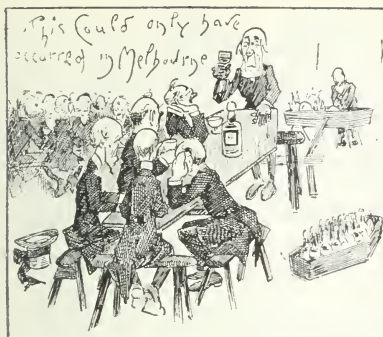 This Could only have
occurred in Melbourne